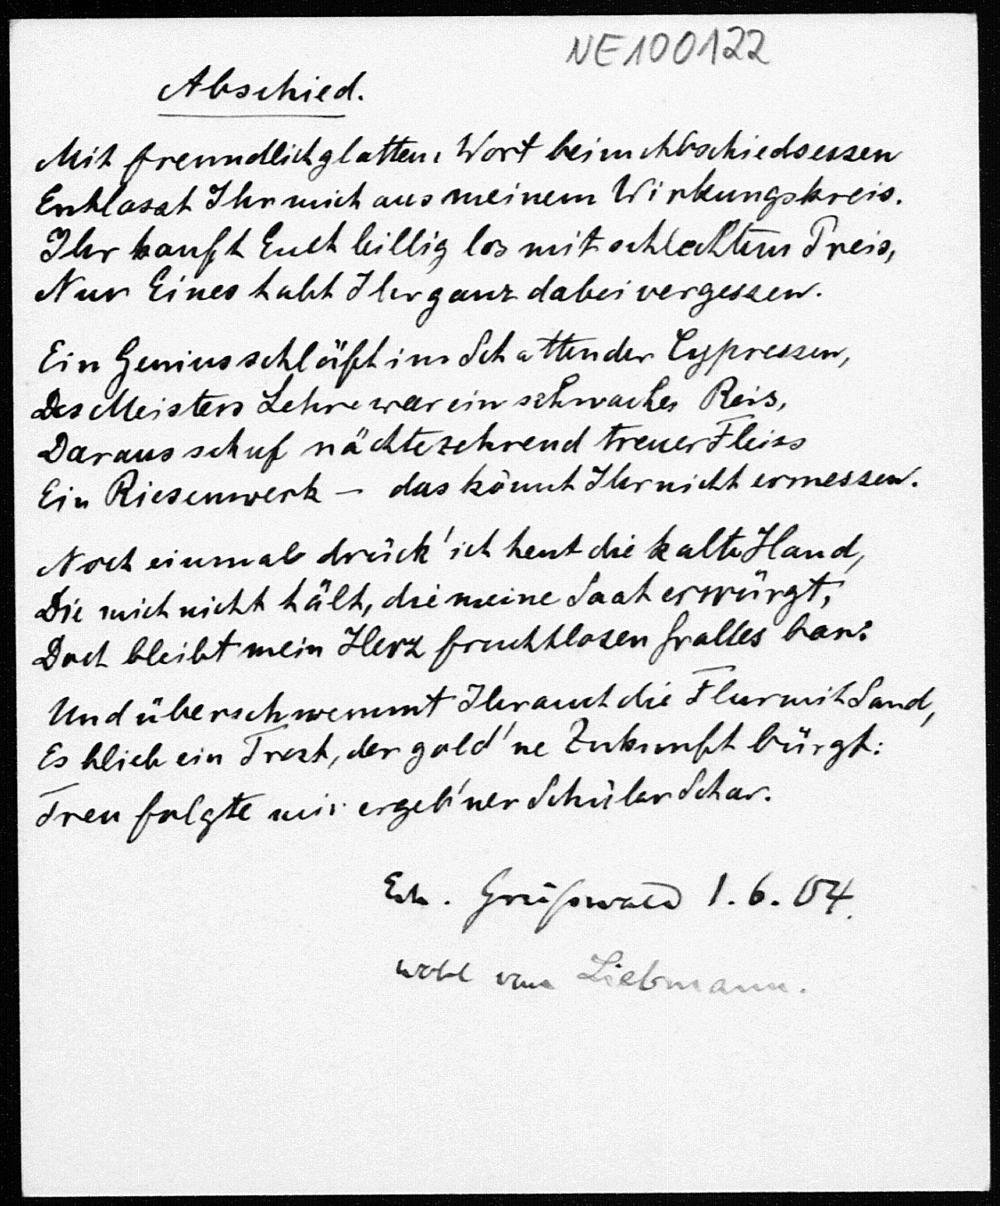 NE100122
Abschied.
Mit freundlich glattem Wort beim Abschiedsessen
Entlasst Ihr mich aus meinem Wirkungskreis.
Ihr kauft Euch billig los mit schlechtem Preis,
Nur Eines habt Ihr ganz dabei vergessen.
Ein Genius schläft im Schatten der Cypressen,
Des Meisters Lehre war ein schwaches Reis,
Daraus schuf nächtezehrend treuer Fleiss
Ein Riesenwerk – das könnt Ihr nicht ermessen.
Noch einmal drück' ich heut die kalte Hand,
Die mich nicht hält, die meine Saat erwürgt,
Doch bleibt mein Herz fruchtlosen Grolles bar:
Und überschwemmt Ihr auch die Flur mit Sand,
Es blieb ein Trost, der gold'ne Zukunft bürgt:
Treu folgte mir ergeb'ner Schüler Schar.
1.6.04.
wohl von Liebmann.